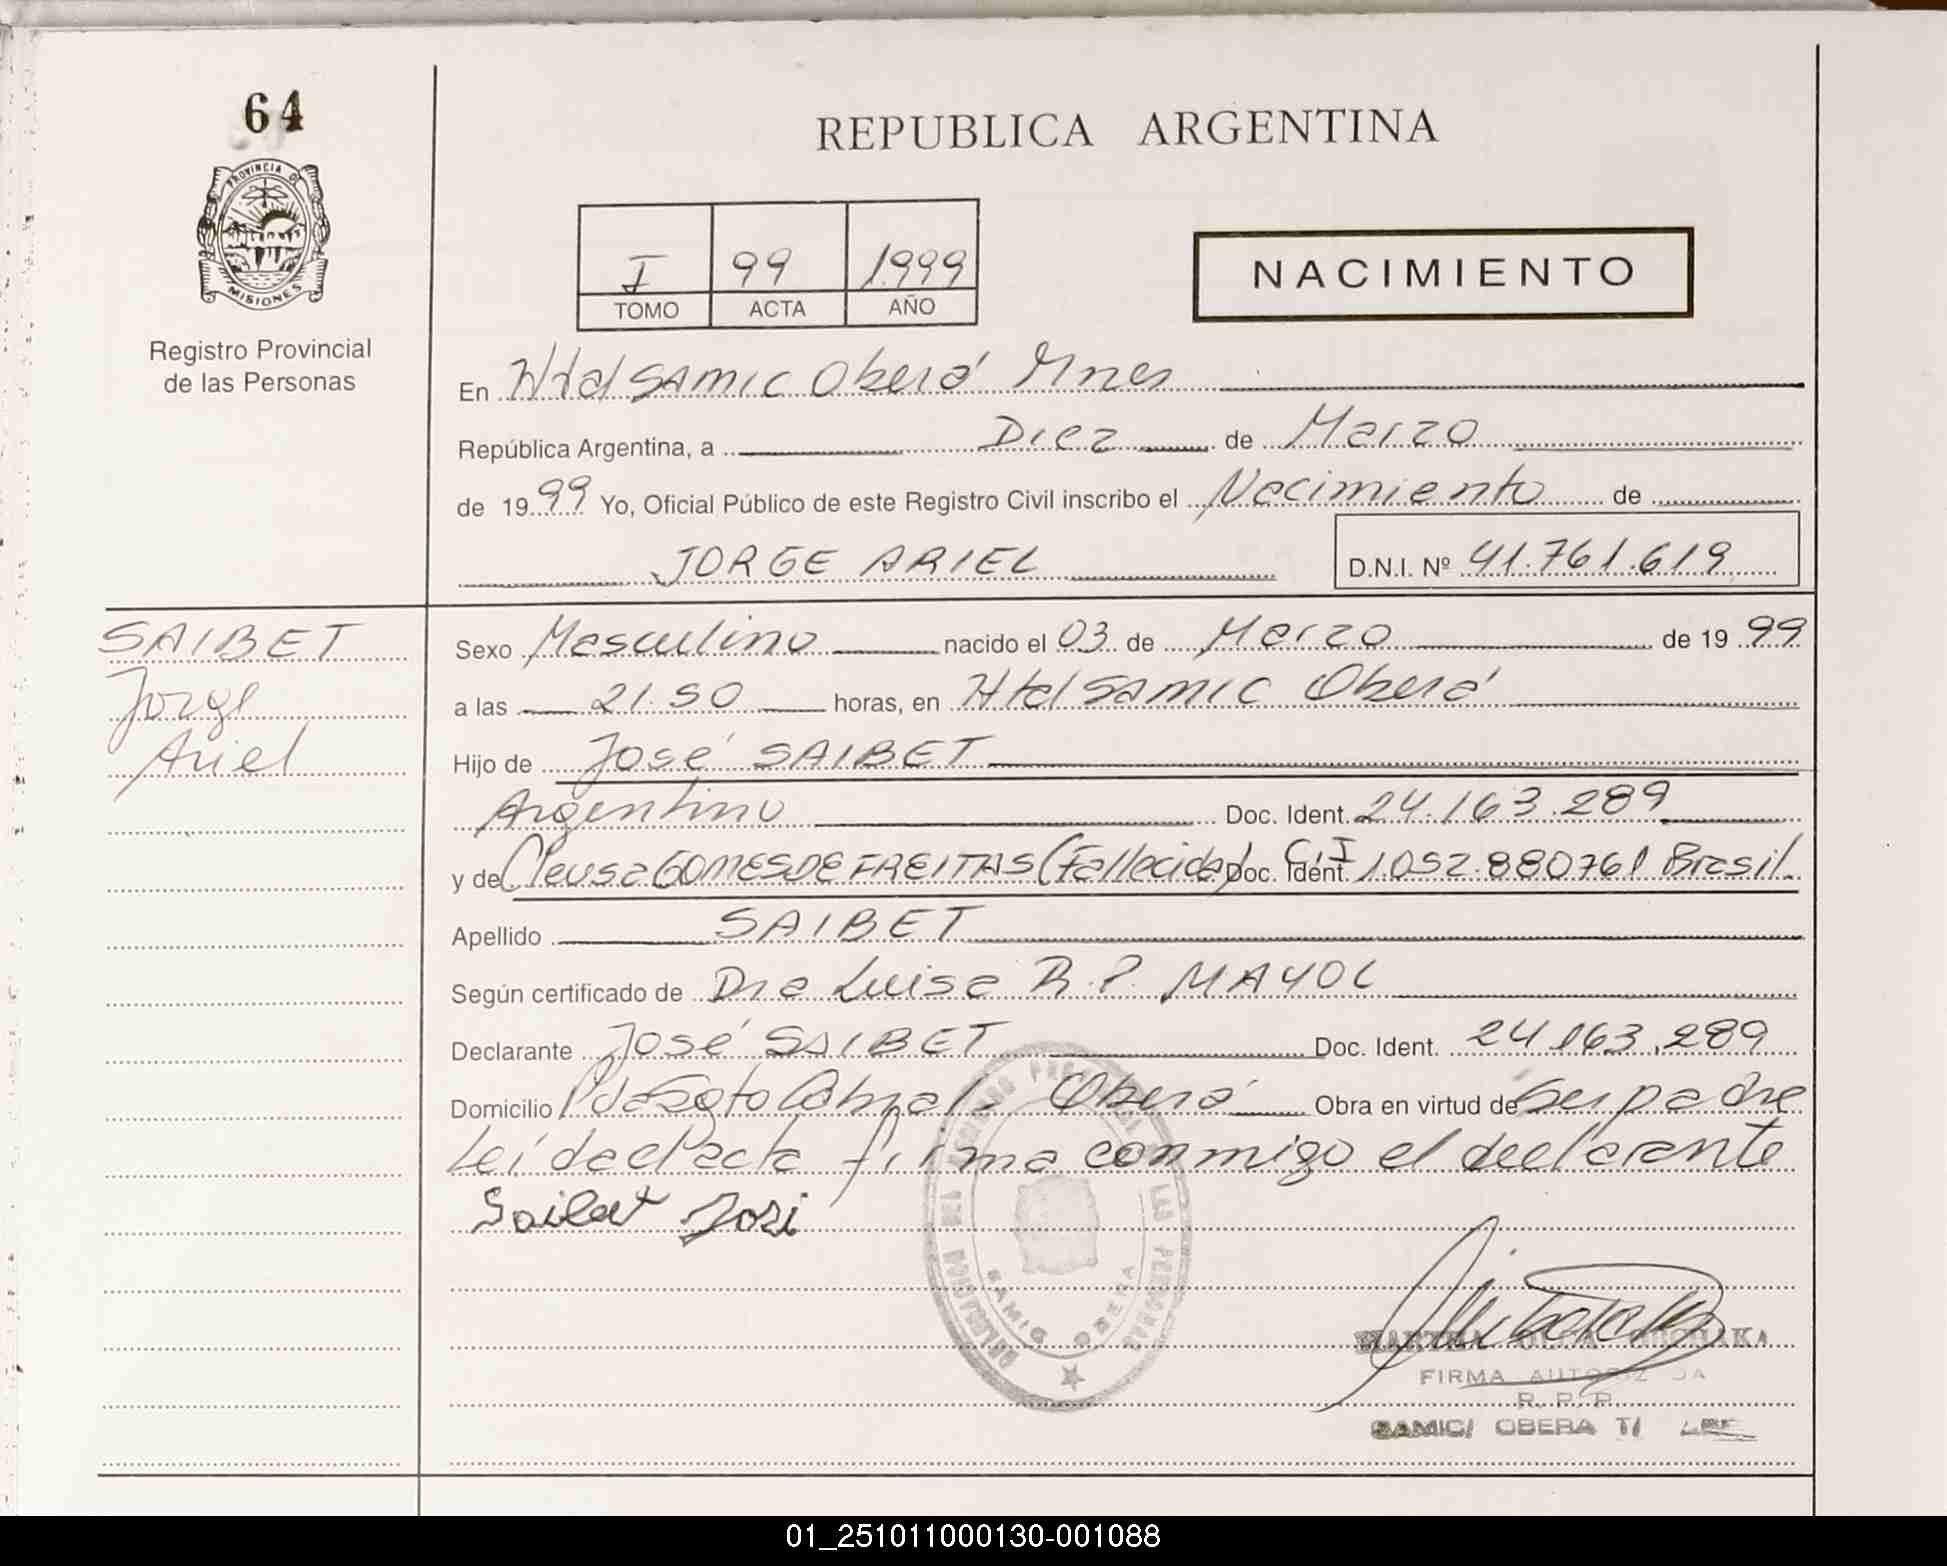 64
REPUBLICA ARGENTINA
PROVINCIA D
MISIONES
Registro Provincial
de las Personas
I 99 1.999
TOMO ACTA AÑO
NACIMIENTO
En Htal SAMIC Oberá Mnes
República Argentina, a Diez de Marzo
de 1999 Yo, Oficial Público de este Registro Civil inscribo el Nacimiento de
JORGE ARIEL D.N.I. Nº 41.761.619
SAIBET
Jorge
Ariel
Sexo Masculino nacido el 03 de Marzo de 1999
a las 21.50 horas, en Htal SAMIC Oberá
Hijo de José SAIBET
Argentino Doc. Ident. 24.163.289
y de Cleusa GOMES DE FREITAS (Fallecida) Doc. Ident. C.I 1052.880761 Brasil.
Apellido SAIBET
Según certificado de Dra Luisa R.P. MAYOL
Declarante José SAIBET Doc. Ident. 24.163.289
Domicilio Pda Sgto Cabral Oberá Obra en virtud de ser padre
Leída el acta firma conmigo el declarante
Saibet José
SAMIC OBERA
MARTHA OLGA
FIRMA AUTORIZADA
R.P.P.
SAMIC/ OBERA
01_251011000130-001088